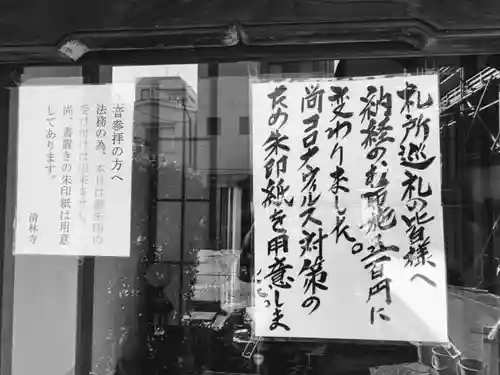 札所巡礼の皆様へ
納経の御印代が三百円に
変わりました。
尚コロナウィルス対策の
ため朱印紙を用意しま
音参拝の方へ
法務の為、本日は御朱印の
受け付けは出来ません。
尚、書置きの朱印紙は用意
してあります。
清林寺